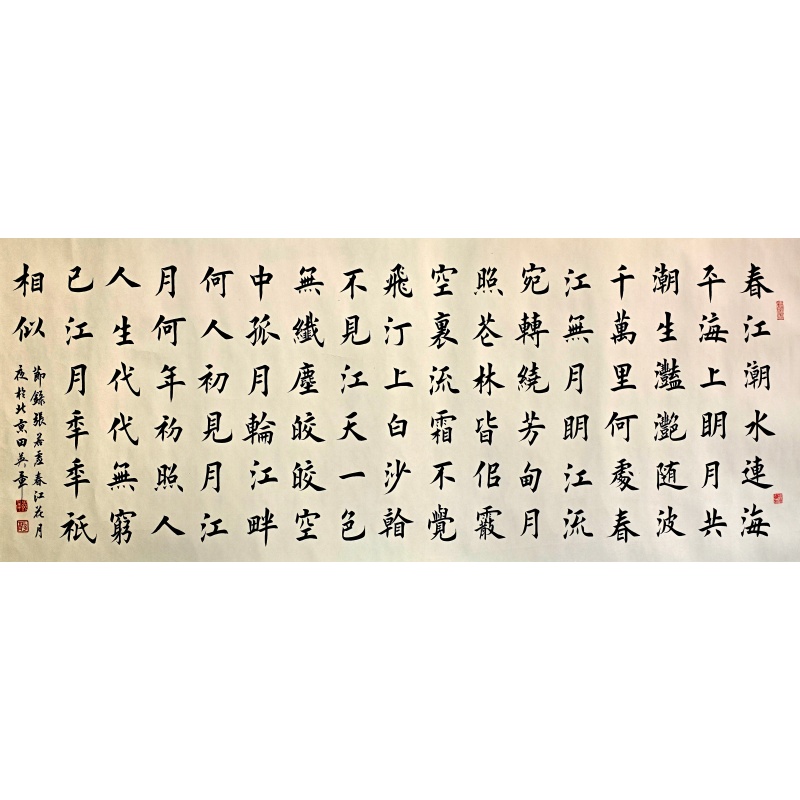 春江潮水連海
平海上明月共
潮生灩灧随波
千萬里何處春
江無月明江流
宛轉繞芳甸月
照花林皆佀霰
空裏流霜不覺
飛汀上白沙看
不見江天一色
無纖塵皎皎空
中孤月輪江畔
何人初見月江
月何年初照人
人生代代無窮
已江月秊秊祇
相似
節錄張若虛春江花月
夜於北京田英章